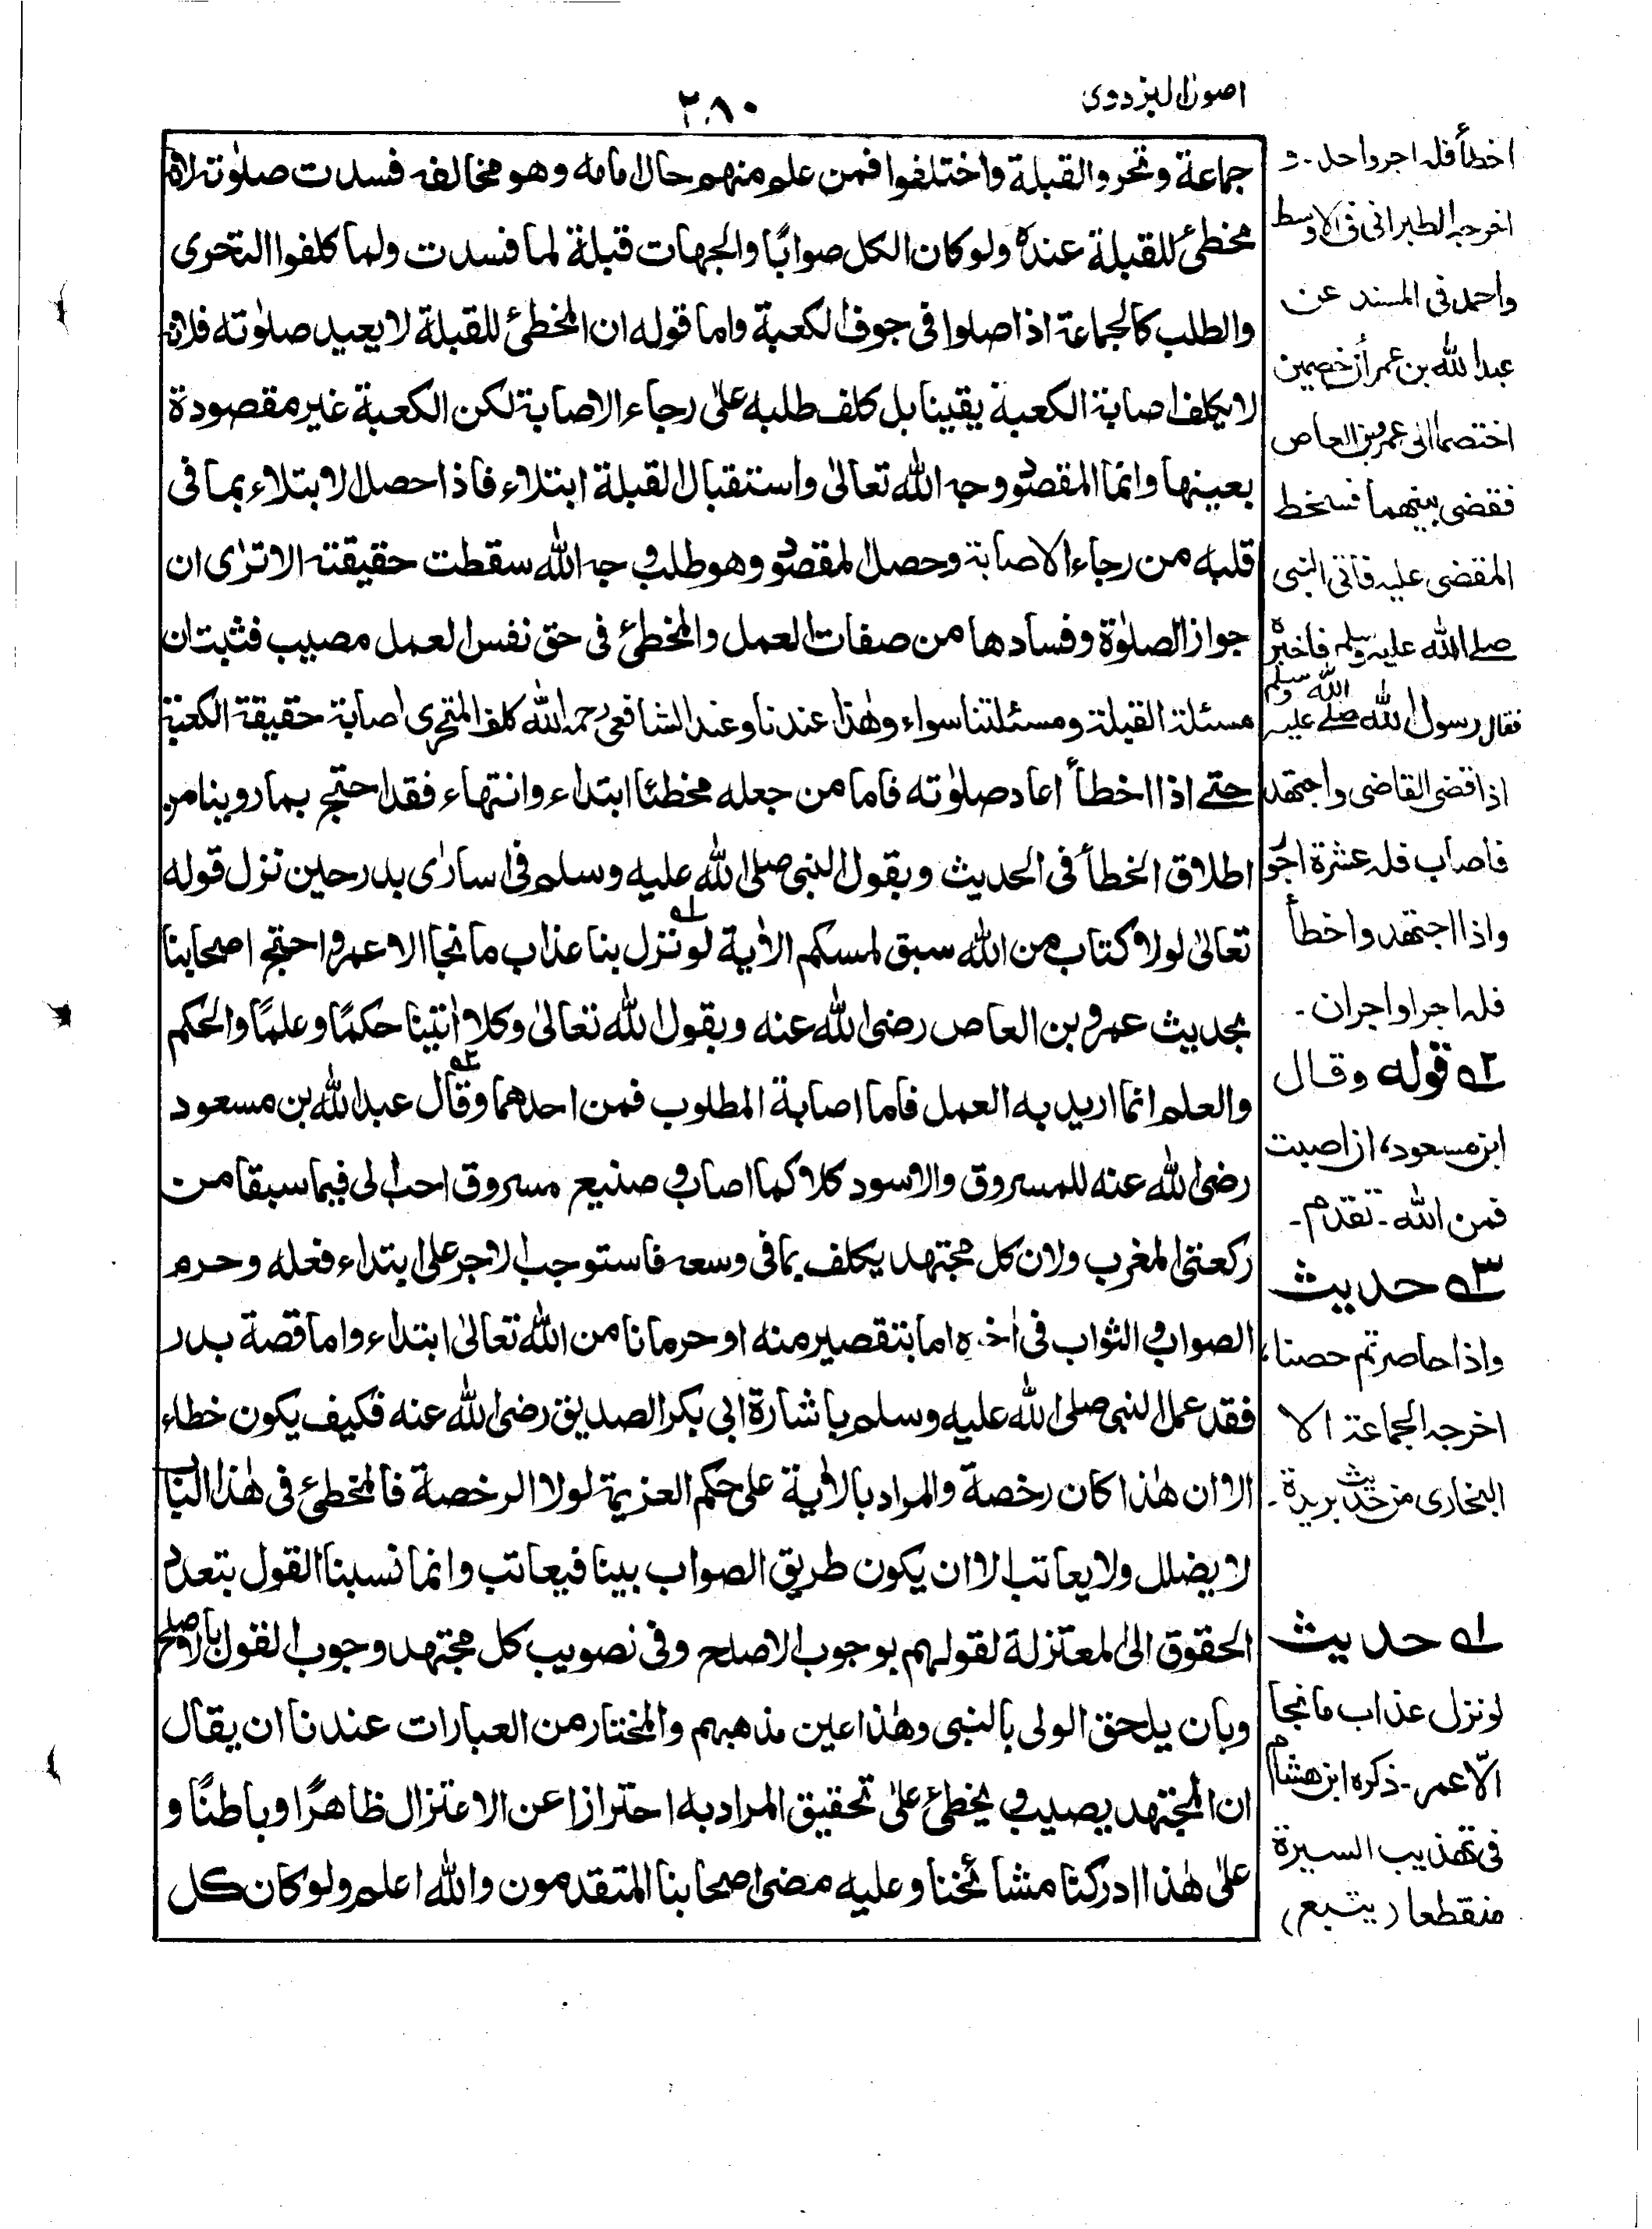 اصول البزدوی
٢٨٠
جماعة وتحروا القبلة واختلفوا فمن علم منهم حال امامه وهو مخالفه فسدت صلوٰته لانه
مخطئ للقبلة عندہ ولو كان الكل صوابًا والجهات قبلة لما فسدت ولما كلفوا التحرى
والطلب كالجماعة اذا صلوا فى جوف الكعبة واما قوله ان المخطئ للقبلة لا يعيد صلوٰته فلانه
لا يكلف اصابة الكعبة يقينا بل كلف طلبه علىٰ رجاء الاصابة لكن الكعبة غير مقصودة
بعينها وانما المقصود وجه الله تعالىٰ واستقبال القبلة ابتلاء فاذا حصل الابتلاء بما فى
قلبه من رجاء الاصابة وحصل المقصود وهو طلب وجه الله سقطت حقيقته الا ترٰى ان
جواز الصلوٰة وفسادها من صفات العمل والمخطئ فى حق نفس العمل مصيب فثبت ان
مسئلة القبلة ومسئلتنا سواء وهٰذا عندنا وعند الشافعى رحمه الله كلف المتحرى اصابة حقيقة الكعبة
حتے اذا اخطأ اعاد صلوٰته فاما من جعله مخطئا ابتداء وانتهاء فقد احتج بما روينا من
اطلاق الخطأ فى الحديث وبقول النبى صلى الله عليه وسلم فى اسارٰى بدر حين نزل قوله
تعالىٰ لولا كتاب من الله سبق لمسكم الاٰية لو نزل بنا عذاب ما نجا الا عمر واحتج اصحابنا
بحديث عمرو بن العاص رضى الله عنه وبقول الله تعالىٰ وكلا اٰتينا حكمًا وعلمًا والحكم
والعلم انما اريد به العمل فاما اصابة المطلوب فمن احدهما وقال عبد الله بن مسعود
رضى الله عنه للمسروق والاسود كلاكما اصاب و صنيع مسروق احب الى فيما سبقا من
ركعتى المغرب ولان كل مجتهد يكلف بما فى وسعه فاستوجب الاجر على ابتداء فعله وحرم
الصواب والثواب فى اٰخرہ اما بتقصير منه او حرمانا من الله تعالىٰ ابتداء واما قصة بدر
فقد عمل النبى صلى الله عليه وسلم باشارة ابى بكر الصديق رضى الله عنه فكيف يكون خطاء
الا ان هٰذا كان رخصة والمراد بالاٰية على حكم العزيمة لولا الرخصة فالمخطئ فى هٰذا الباب
لا يضلل ولا يعاتب الا ان يكون طريق الصواب بينا فيعاتب وانما نسبنا القول بتعدد
الحقوق الى المعتزلة لقولهم بوجوب الاصلح وفى تصويب كل مجتهد وجوب القول بالاصلح
وبان يلحق الولى بالنبى وهٰذا عين مذهبهم والمختار من العبارات عندنا ان يقال
ان المجتهد يصيب و يخطئ علىٰ تحقيق المراد به احترازا عن الاعتزال ظاهرًا وباطنًا و
علىٰ هٰذا ادركنا مشائخنا وعليه مضى اصحابنا المتقدمون والله اعلم ولو كان كل
اخطأ فله اجر واحد ۔ و
اخرجه الطبرانى فى الاوسط
واحمد فى المسند عن
عبد الله بن عمر أن خصمين
اختصما الى عمرو بن العاص
فقضى بينهما فسخط
المقضى عليه فأتى النبى
صلے الله عليه وسلم فاخبرہ
فقال رسول الله صلے الله عليه وسلم
اذا قضى القاضى واجتهد
فاصاب فله عشرة اجور
واذا اجتهد واخطأ
فله اجر او اجران ۔
٢؎ قوله وقال
ابن مسعود، ان اصبت
فمن الله ۔ تقدم ۔
٣؎ حديث
واذا حاصرتم حصنا،
اخرجه الجماعة الا
البخارى من حديث بريدة ۔
١؎ حديث
لو نزل عذاب ما نجا
الّا عمر ۔ ذكره ابن هشام
فى تهذيب السيرة
منقطعا (يتبع)